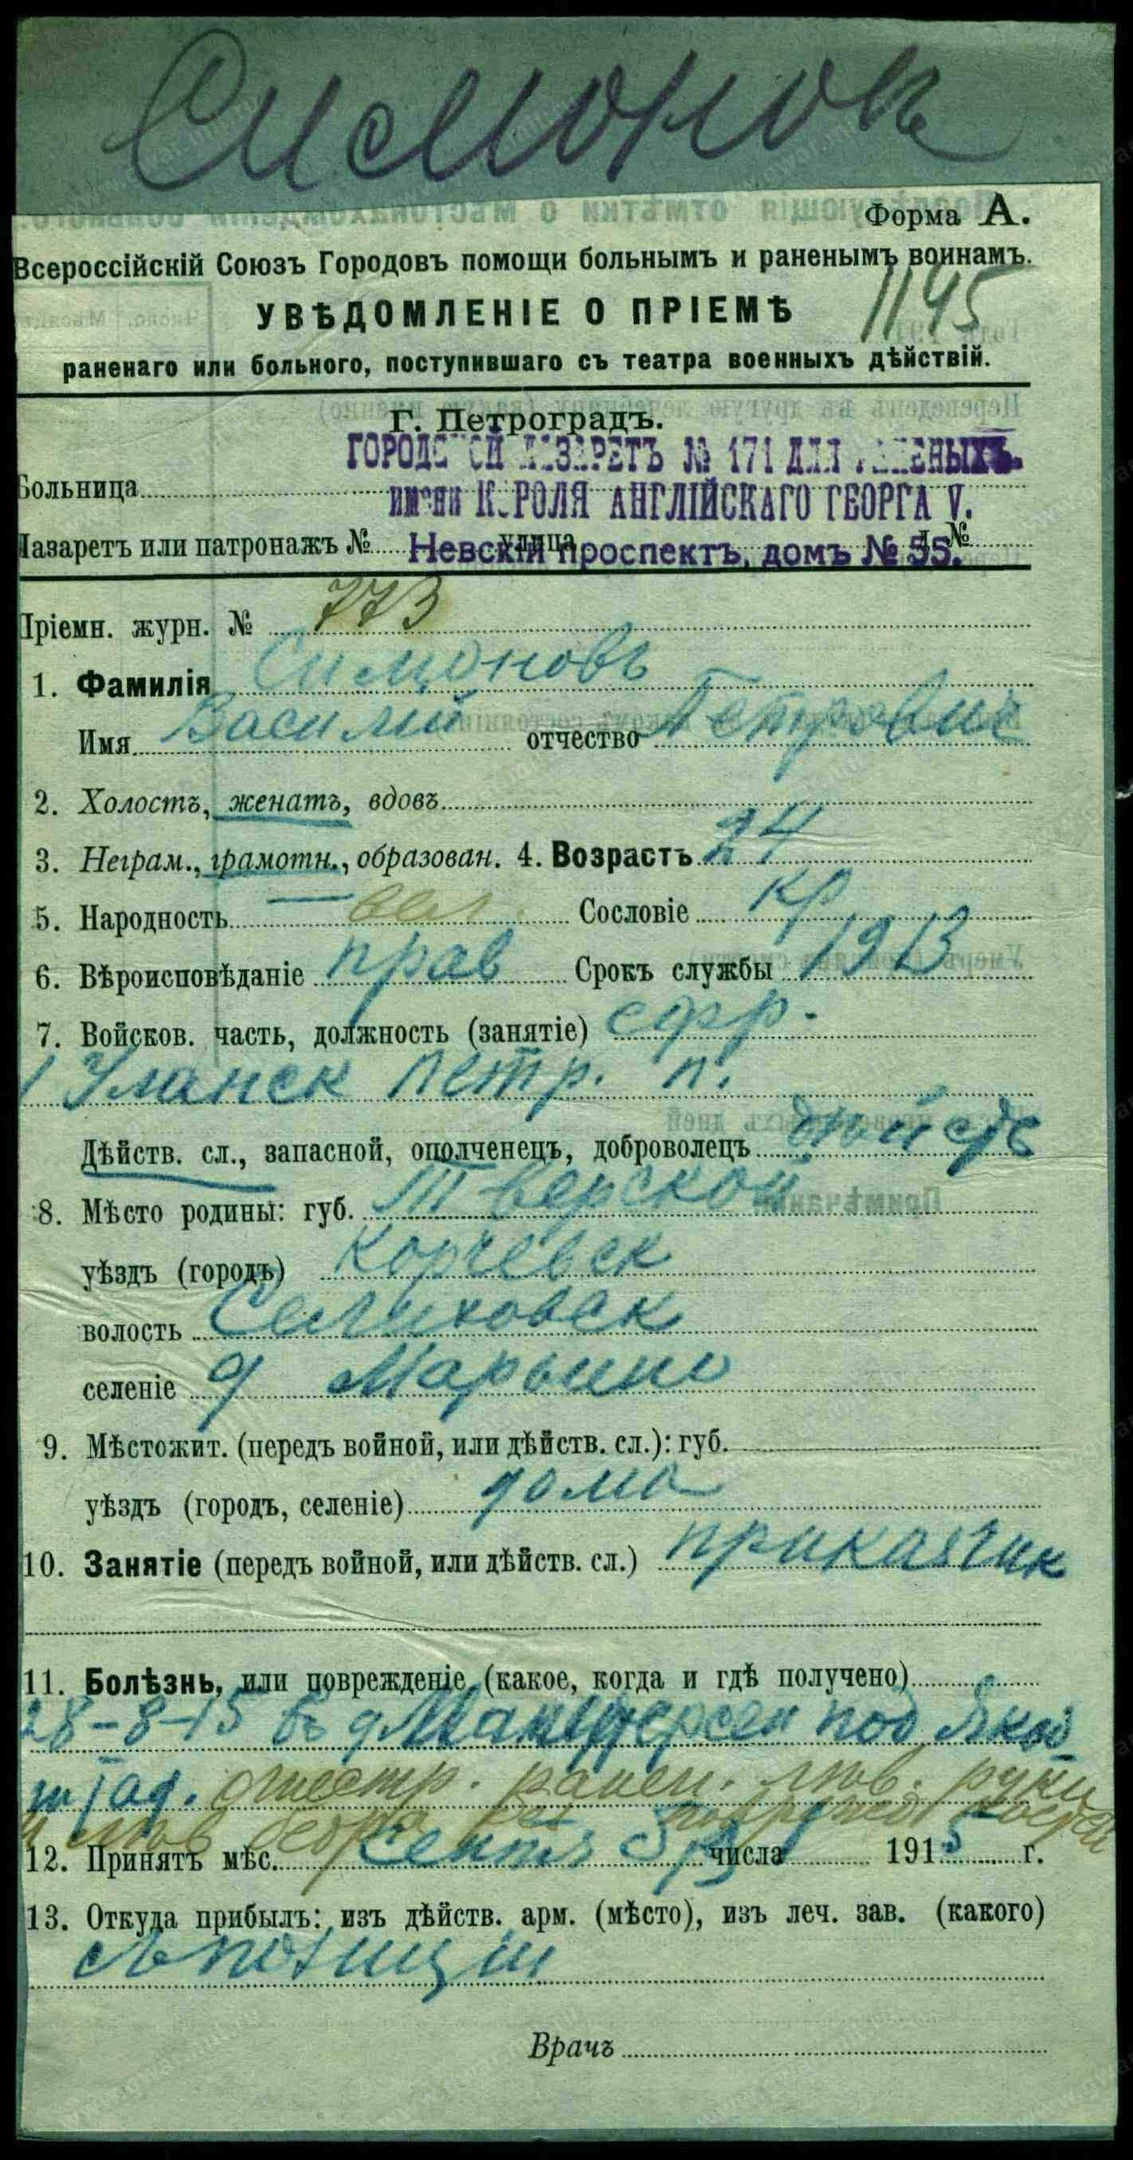 Симонов
Форма А.
Всероссійскій Союзъ Городовъ помощи больнымъ и раненымъ воинамъ.
1195
УВѢДОМЛЕНІЕ О ПРІЕМѢ
раненаго или больного, поступившаго съ театра военныхъ дѣйствій.
Г. Петроградъ.
ГОРОДСКОЙ ЛАЗАРЕТЪ № 171 ДЛЯ РАНЕНЫХЪ.
Больница
имени КОРОЛЯ АНГЛІЙСКАГО ГЕОРГА V.
Лазаретъ или патронажъ № улица д. №
Невскій проспектъ, домъ № 55.
Пріемн. журн. № 773
1. Фамилія Симоновъ
Имя Василий отчество Петрович
2. Холостъ, женатъ, вдовъ
3. Неграм., грамотн., образован. 4. Возрастъ 24
5. Народность вел. Сословіе кр
6. Вѣроисповѣданіе прав Срокъ службы 1913
7. Войсков. часть, должность (занятіе) ефр.
1 Уланск петр. п.
Дѣйств. сл., запасной, ополченецъ, доброволецъ
8. Мѣсто родины: губ. Тверской
уѣздъ (городъ) Корчевск
волость Селиховск
селеніе д Марьино
9. Мѣстожит. (передъ войной, или дѣйств. сл.): губ.
уѣздъ (городъ, селеніе) дома
10. Занятіе (передъ войной, или дѣйств. сл.) приказчик
11. Болѣзнь, или поврежденіе (какое, когда и гдѣ получено)
28-8-15 въ д под Якоб
штад. огнестр. ранен. лев. руки
и лев бедра
12. Принятъ мѣс. Сентя числа 1915 г.
13. Откуда прибылъ: изъ дѣйств. арм. (мѣсто), изъ леч. зав. (какого)
съ позиции
Врачъ